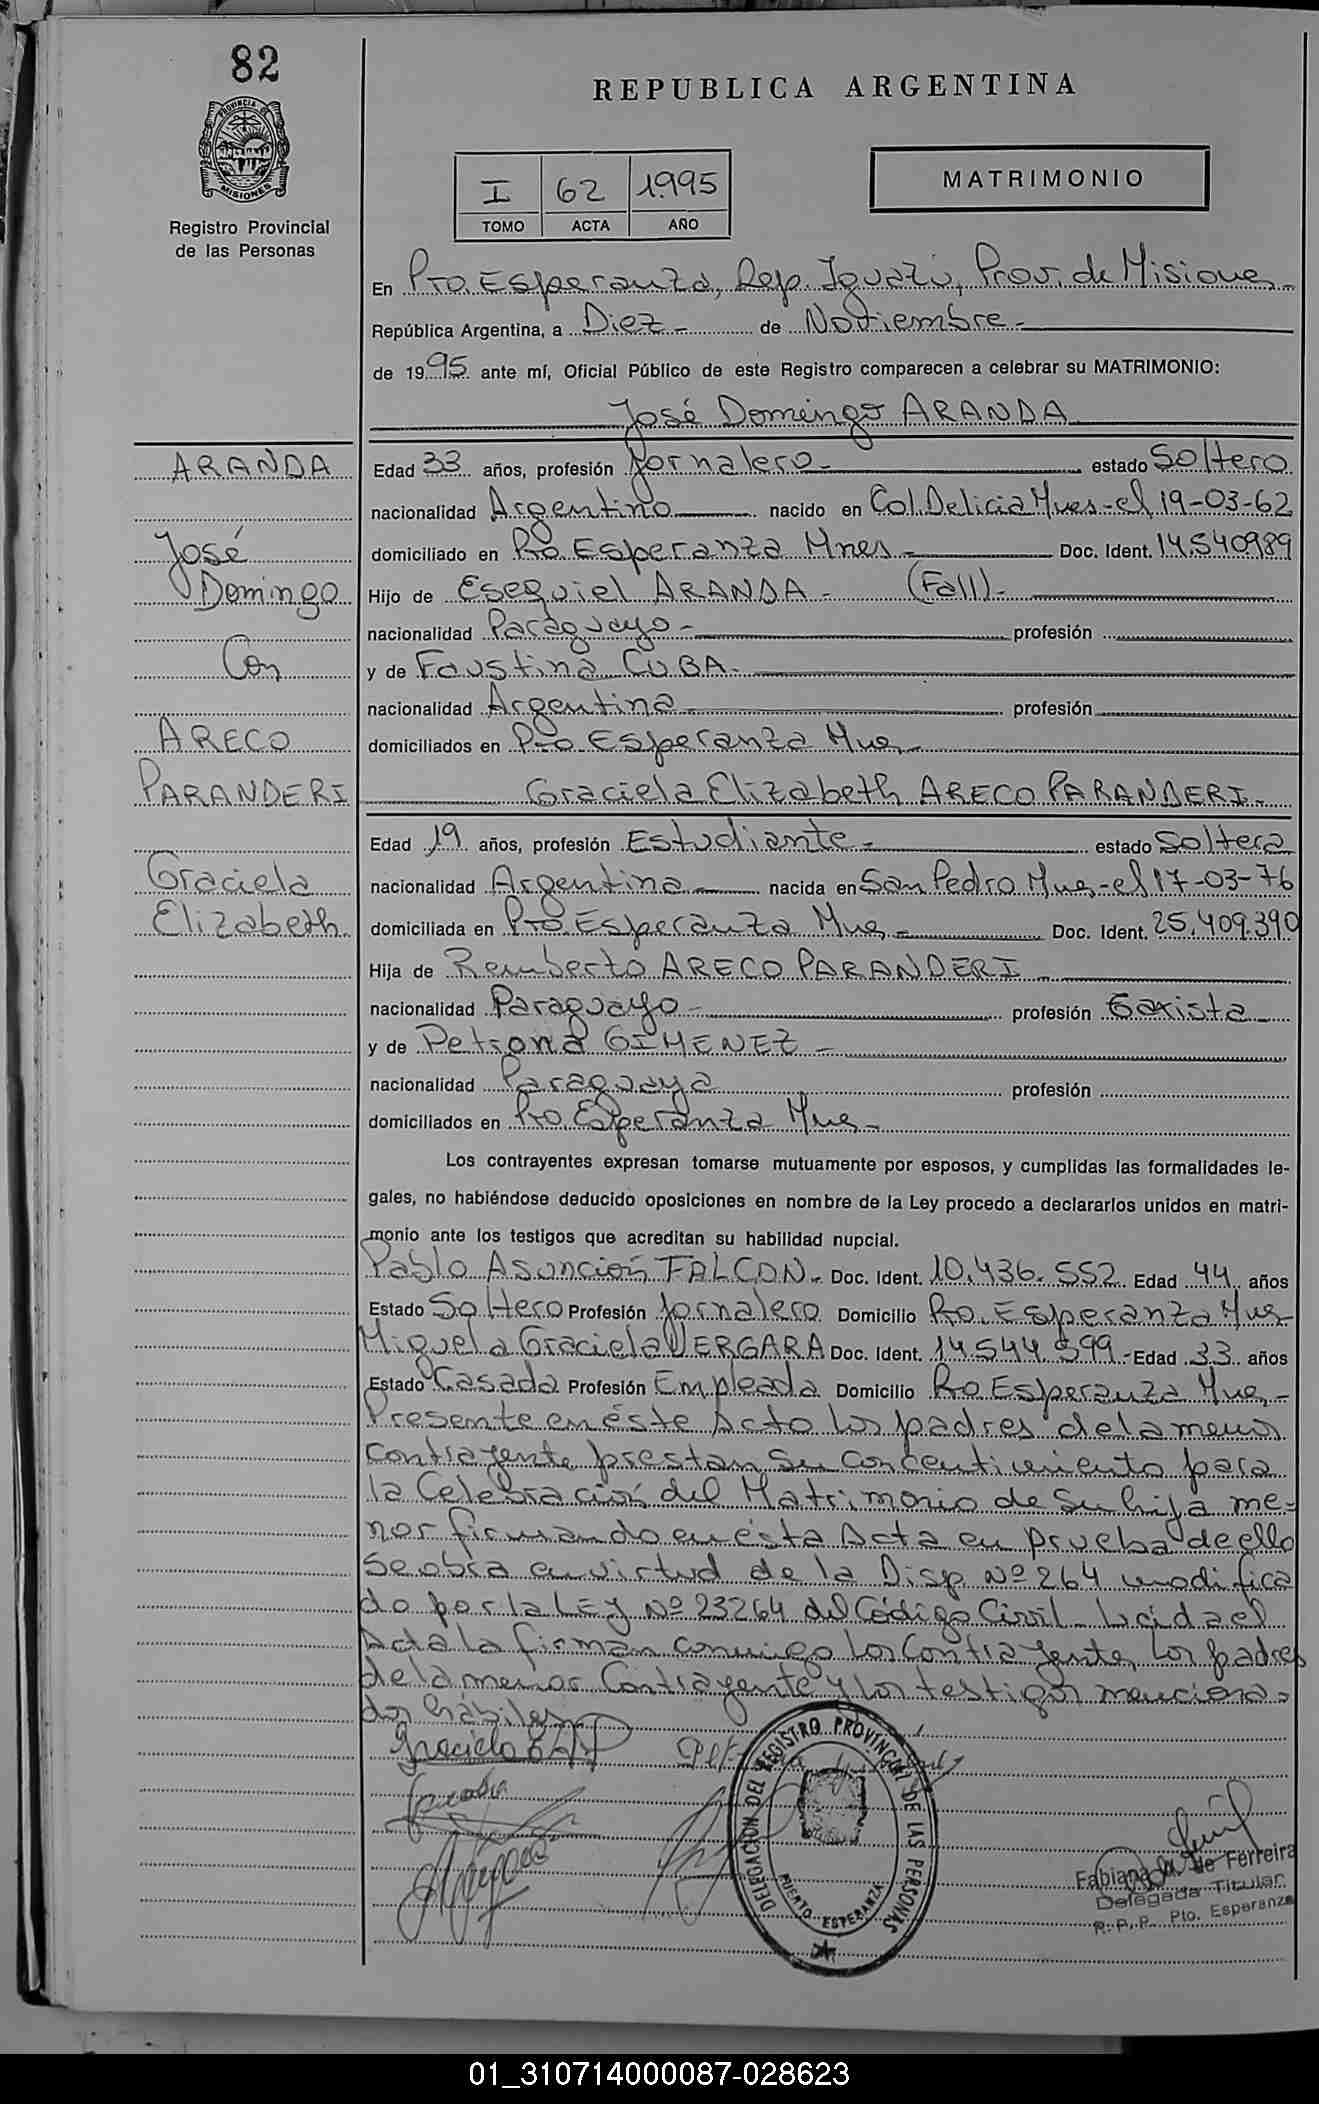 82
REPUBLICA ARGENTINA
PROVINCIA DE
MISIONES
Registro Provincial
de las Personas
I 62 1995
TOMO ACTA AÑO
MATRIMONIO
En Pto. Esperanza, Dep. Iguazú, Prov. de Misiones
República Argentina, a Diez - de Noviembre -
de 1995 ante mí, Oficial Público de este Registro comparecen a celebrar su MATRIMONIO:
José Domingo ARANDA
ARANDA
José
Domingo
Con
ARECO
PARANDERI
Graciela
Elizabeth
Edad 33 años, profesión Jornalero - estado Soltero
nacionalidad Argentino nacido en Col. Delicia Mnes - el 19-03-62
domiciliado en Pto Esperanza Mnes - Doc. Ident. 14.540989
Hijo de Esequiel ARANDA - (Fall) -
nacionalidad Paraguayo - profesión
y de Faustina CUBA -
nacionalidad Argentina - profesión
domiciliados en Pto Esperanza Mnes -
Graciela Elizabeth ARECO PARANDERI -
Edad 19 años, profesión Estudiante - estado Soltera
nacionalidad Argentina nacida en San Pedro Mnes - el 17-03-76
domiciliada en Pto Esperanza Mnes - Doc. Ident. 25.409.390
Hija de Remberto ARECO PARANDERI -
nacionalidad Paraguayo - profesión
y de Petrona GIMENEZ -
nacionalidad Paraguaya profesión
domiciliados en Pto. Esperanza Mnes -
Los contrayentes expresan tomarse mutuamente por esposos, y cumplidas las formalidades le-
gales, no habiéndose deducido oposiciones en nombre de la Ley procedo a declararlos unidos en matri-
monio ante los testigos que acreditan su habilidad nupcial.
Pablo Asunción FALCON - Doc. Ident. 10.436.552 Edad 44 años
Estado Soltero Profesión Jornalero Domicilio Pto. Esperanza Mnes
Miguela Graciela VERGARA Doc. Ident. 14544 599 - Edad 33 años
Estado Casada Profesión Empleada Domicilio Pto Esperanza Mnes -
Presente en éste Acto los padres de la menor
contrayente prestan su concentimiento para
la Celebración del Matrimonio de su hija me=
nor firmando en ésta Acta en prueba de ello
Se obra en virtud de la Disp Nº 264 modifica
do por la LEY Nº 23264 del Código Civil - Leida el
Acta la firman conmigo los Contrayente, los padres
de la menor Contrayente y los testigos menciona=
dos hábiles
Graciela
DELEGACION DEL REGISTRO PROVINCIAL DE LAS PERSONAS
PUERTO ESPERANZA
Fabiana de Ferreira
Delegada Titular
R. P. P. Pto. Esperanza
01_310714000087-028623